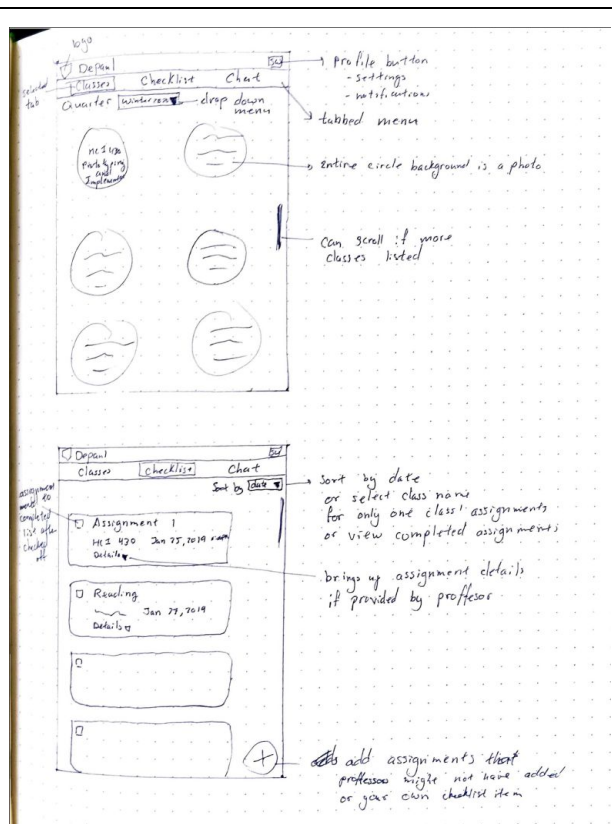 logo
Depaul
SW
profile button
- settings
- notifications
selected
tab
Classes Checklist Chat
tabbed menu
Quarter Winter 2019 drop down
menu
HCI 430
Prototyping
and
Implementation
Entire circle background is a photo
can scroll if more
classes listed
Depaul
SW
Classes Checklist Chat
Sort by date
sort by date
or select class name
for only one class' assignments
or view completed assignments
assignment
moved to
completed
list after
checked
off
Assignment 1
HCI 430 Jan 25, 2019
Details
brings up assignment details
if provided by proffesor
Reading
Jan 27, 2019
Details
+
add assignments that
proffessor might not have added
or your own checklist item